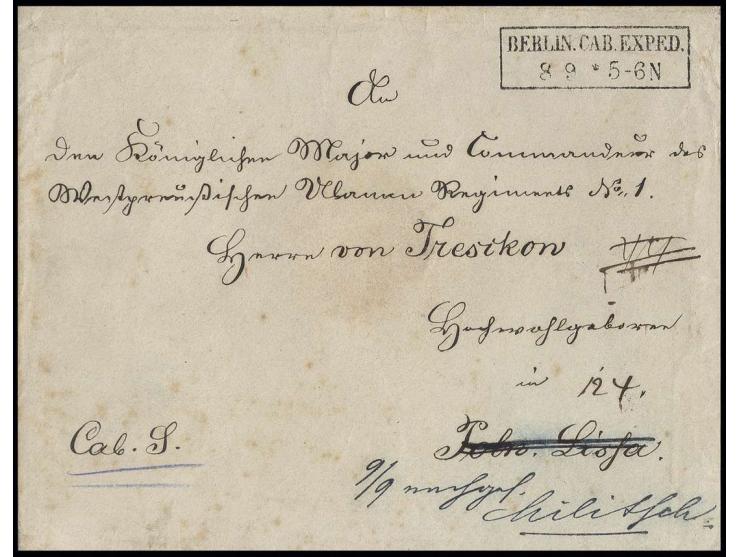 BERLIN. CAB. EXPED.
8 9 * 5-6 N
An
den Königlichen Major und Commandeur des
Westpreußischen Ulanen Regiments No. 1.
Herrn von Tresikow
Hochwohlgeboren
in
124.
Cab. S.
Poln. Lissa.
9/9 nachges. Militsch.